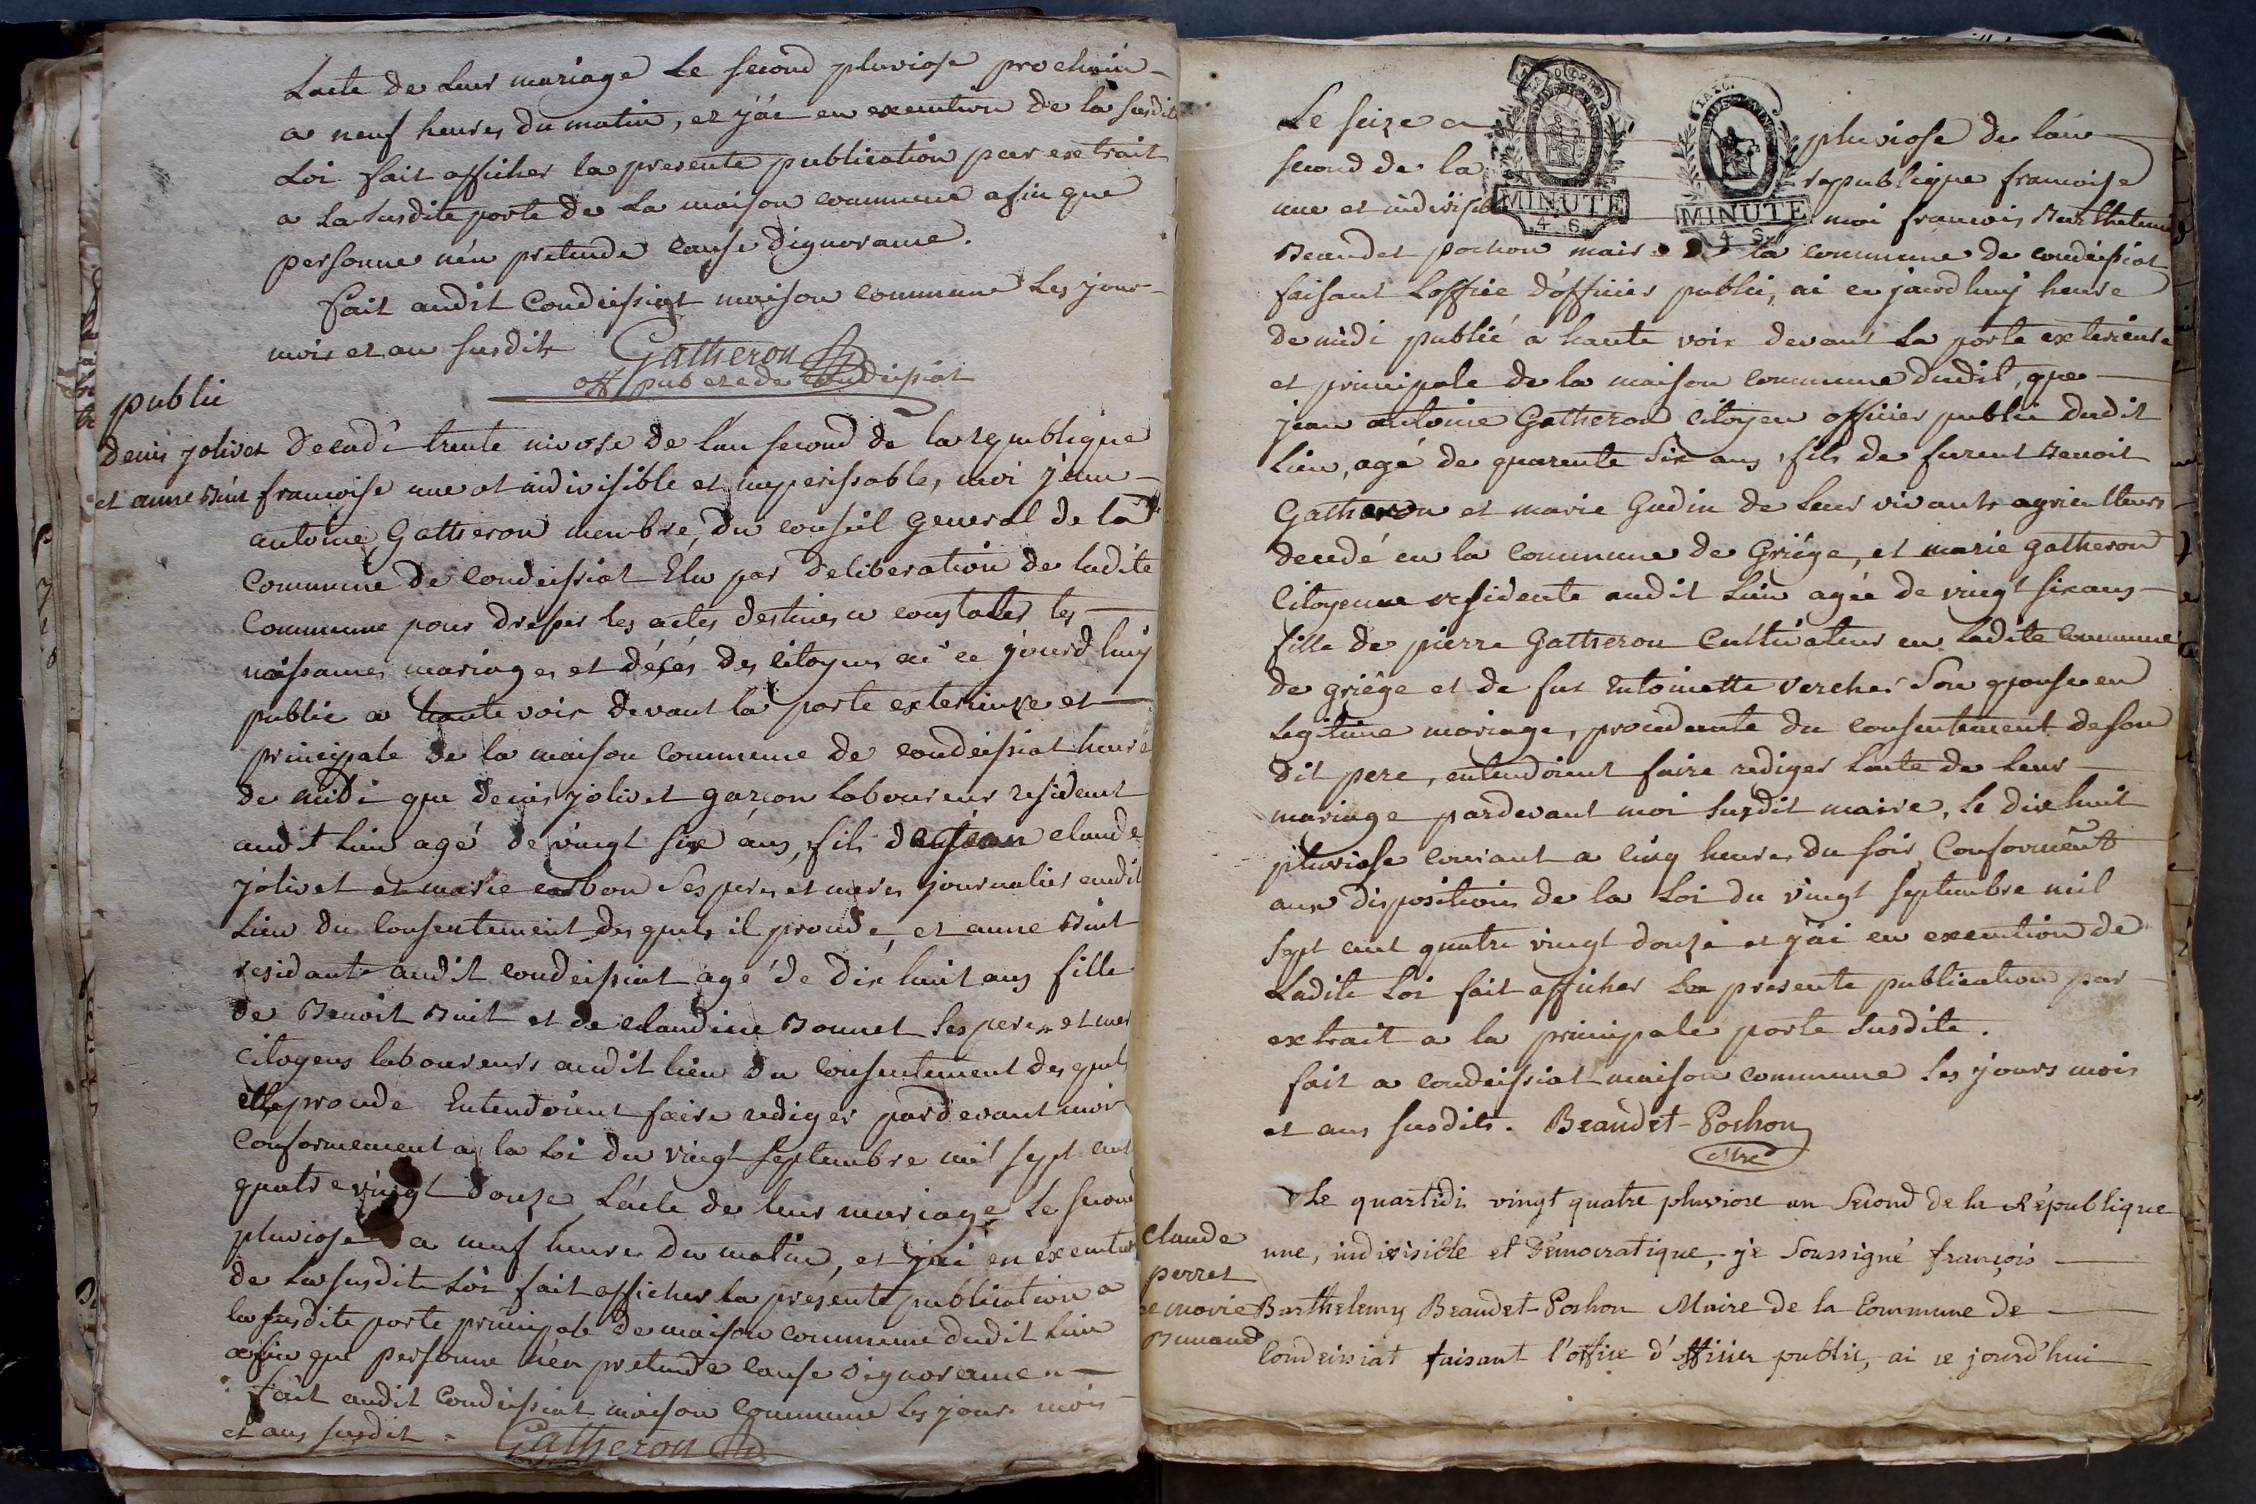 Lacte de Leur mariage Le second pluviose prochain
a neuf heures du matin, et j'ai en execution de la susdit
Loi fait afficher la presente publication par extrait
a La Susdite porte de La maison commune afin que
personne n'en pretende cause d'ignorance.
fait audit Condeissiat maison commune Les jour
mois et an susdits Gatheron
off pub et c de Condeissiat
public
denis jolivet
et anne Buit
Decadi trente nivose de L'an second de la republique
francoise une et indivisible et imperissable, moi jean
antoine Gatheron membre du conseil General de la
Commune de Condeissiat Elu par deliberation de ladite
Commune pour dresser les actes destines a constater les
naissances mariages et décés des citoyens ai ce jourd huij
publié a haute voix devant la porte exterieure et
principale de la maison commune de condeissiat heure
de midi que denis jolivet garcon laboureur resident
audit Lieu agé de vingt six ans, fils de jean claude
jolivet et marie carbon ses peres et meres journalier audit
Lieu du Consentement des quels il procede, et anne Buit
residante audit condeissiat agé de dix huit ans fille
de Benoit Buit et de claudine Bonnet ses peres et mer
Citoyens laboureurs audit lieu du consentement des quels
elle procede Entendoient faire rediger pardevant moi
Conformement a la Loi du vingt septembre mil sept cent
quatre vingt douze L'acte de leur mariage Le second
pluviose a neuf heures du matin, et j'ai en execution
de La susdite Loi fait afficher la presente publication a
la susdite porte principale de maison commune dudit Lieu
afin que personne n'en pretende cause d'ignorance.
fait audit Condeissiat maison commune les jours mois
et ans susdit. Gatheron
Le seize pluviose de l'an
second de la republique francoise
une et indivisible moi francois Barthelemi
MINUTE
4 S
MINUTE
4 S
Beaudet pochon maire de la commune de condeissiat
faisant L'office d'officier public, ai cejourd huij heure
de midi publié a haute voix devant La porte exterieure
et principale de la maison commune dudit, que
jean antoine Gatheron citoyen officier public dudit
Lieu, agé de quarente six ans, fils de furent Benoit
Gatheron et marie Gudin de Leur vivants agriculteurs
decedé en la commune de Griége, et marie gatheron
Citoyenne residente audit Lieu agée de vingt six ans
fille de pierre Gatheron Cultivateur en Ladite Commune
de griége et de fut Entoinette Vercher Son epouse en
Legitime mariage, procedente du consentement de son
dit pere, entendoient faire rediger Lacte de Leur
mariage pardevant moi susdit maire, le dix huit
pluviose courant a cinq heures du soir, Conformémt
aux dispositions de la Loi du vingt septembre mil
sept cent quatre vingt douze et j'ai en execution de
Ladite Loi fait afficher La presente publication par
extrait a la principale porte Susdite.
fait a condeissiat maison commune Les jours mois
et ans susdits. Beaudet-Pochon
Mre
claude
perret
et marie
Bunand
Le quartidi vingt quatre pluviose an Second de la République
une, indivisible et Démocratique, je Soussigné françois
Barthelemy Beaudet-Pochon Maire de la Commune de
Condeissiat faisant l'office d'officier public, ai ce jourd'hui